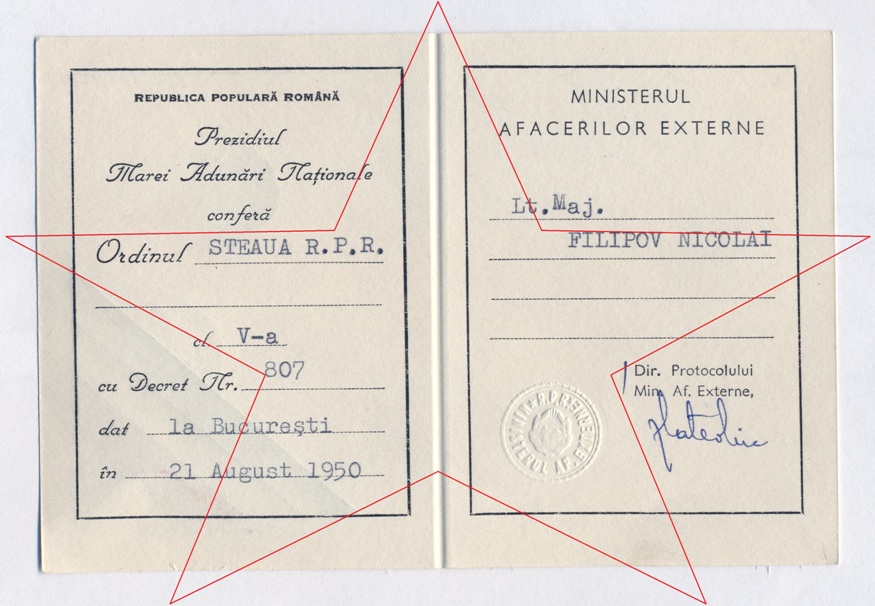 REPUBLICA POPULARĂ ROMÂNĂ
Prezidiul
Marei Adunări Naționale
conferă
Ordinul STEAUA R.P.R.
cl V-a
cu Decret Nr. 807
dat la București
în 21 August 1950
MINISTERUL
AFACERILOR EXTERNE
Lt.Maj.
FILIPOV NICOLAI
Dir. Protocolului
Min. Af. Externe,